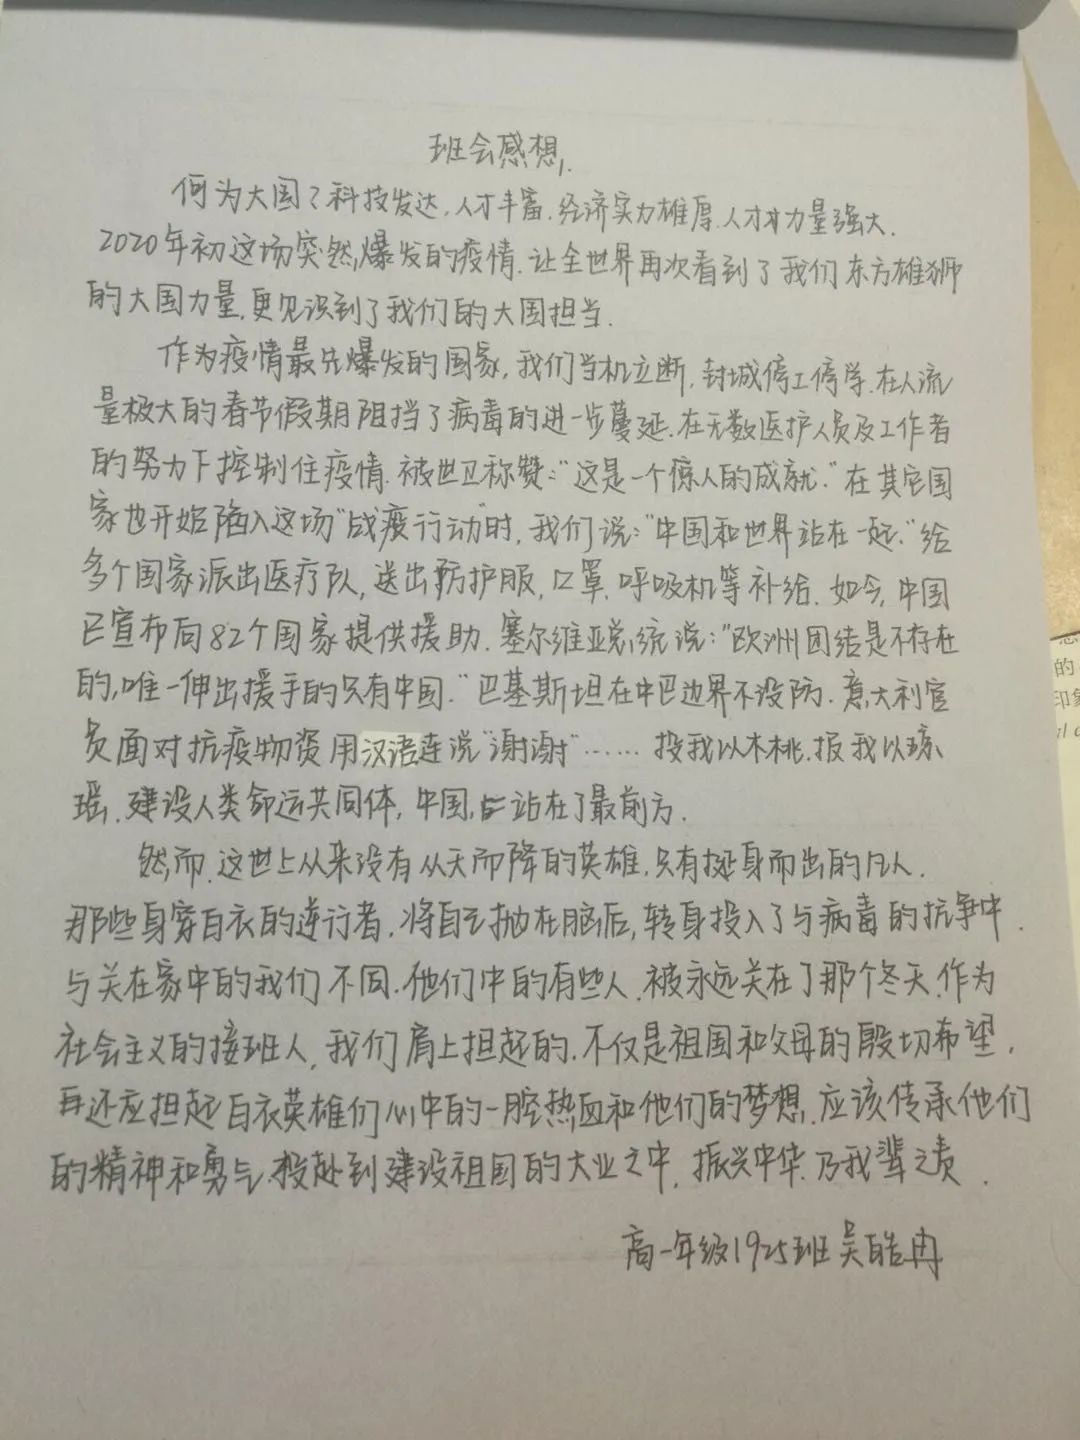 班会感想.
何为大国？科技发达，人才丰富，经济实力雄厚，人才力量强大．
2020年初这场突然爆发的疫情，让全世界再次看到了我们东方雄狮
的大国力量，更见识到了我们的大国担当．
作为疫情最先爆发的国家，我们当机立断，封城停工停学，在人流
量极大的春节假期阻挡了病毒的进一步蔓延．在无数医护人员及工作者
的努力下控制住疫情．被世卫称赞："这是一个惊人的成就．"在其它国
家也开始陷入这场"战疫行动"时，我们说："中国和世界站在一起．"给
多个国家派出医疗队，送出防护服，口罩，呼吸机等补给．如今，中国
已宣布向82个国家提供援助．塞尔维亚总统说："欧洲团结是不存在
的，唯一伸出援手的只有中国．"巴基斯坦在中巴边界不设防．意大利官
员面对抗疫物资用汉语连说"谢谢"……投我以木桃，报我以琼
瑶．建设人类命运共同体，中国，已站在了最前方．
然而，这世上从来没有从天而降的英雄，只有挺身而出的凡人．
那些身穿白衣的逆行者，将自己抛在脑后，转身投入了与病毒的抗争中．
与关在家中的我们不同，他们中的有些人，被永远关在了那个冬天．作为
社会主义的接班人，我们肩上担起的，不仅是祖国和父母的殷切希望，
还应担起白衣英雄们心中的一腔热血和他们的梦想，应该传承他们
的精神和勇气，投赴到建设祖国的大业之中，振兴中华，乃我辈之责．
高一年级1925班吴皓冉
的
印象